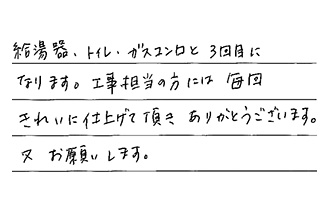 給湯器、トイレ、ガスコンロと 3回目に
なります。工事担当の方には 毎回
きれいに仕上げて頂き ありがとうございます。
又 お願いします。